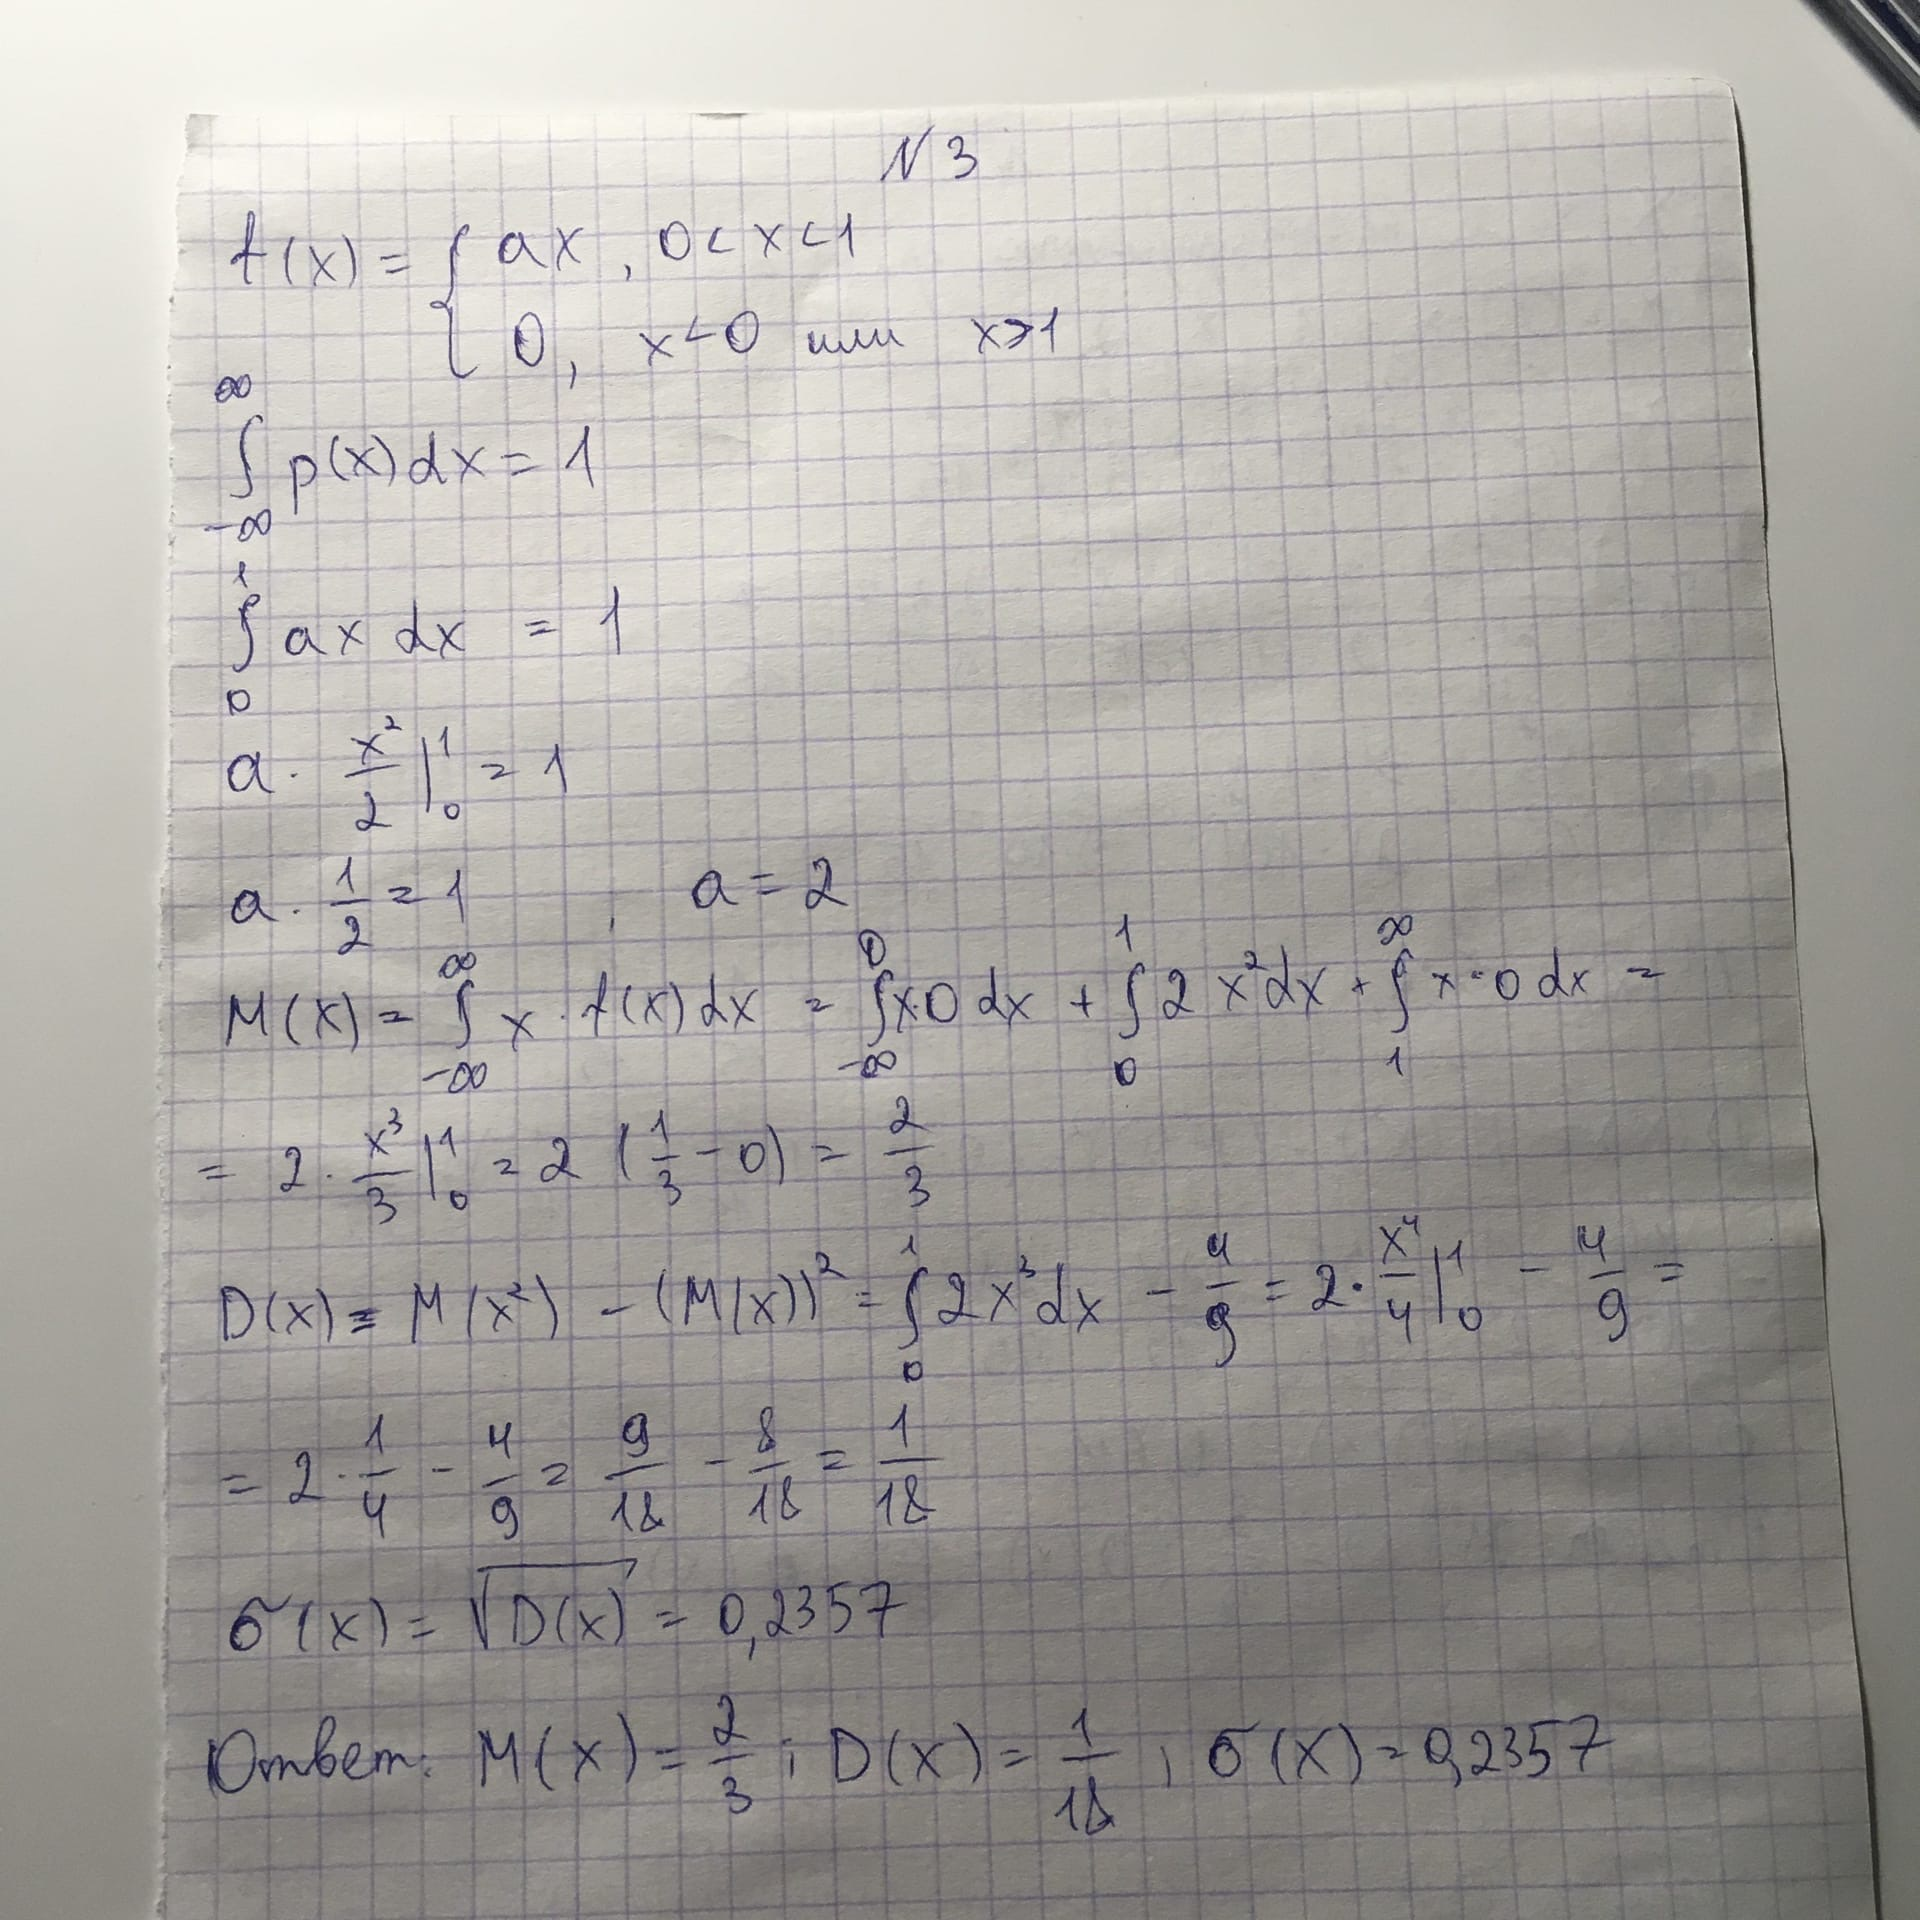 N 3
f(x) = { ax , 0 < x < 1
0 , x < 0 или x > 1
∫_{-∞}^{∞} p(x) dx = 1
∫_{0}^{1} ax dx = 1
a · x²/2 |_0^1 = 1
a · 1/2 = 1 , a = 2
M(x) = ∫_{-∞}^{∞} x · f(x) dx = ∫_{-∞}^{0} x·0 dx + ∫_{0}^{1} 2x² dx + ∫_{1}^{∞} x·0 dx =
= 2 · x³/3 |_0^1 = 2 (1/3 - 0) = 2/3
D(x) = M(x²) - (M(x))² = ∫_{0}^{1} 2x³ dx - 4/9 = 2 · x⁴/4 |_0^1 - 4/9 =
= 2 · 1/4 - 4/9 = 9/18 - 8/18 = 1/18
σ(x) = √D(x) = 0,2357
Ответ: M(x) = 2/3 ; D(x) = 1/18 ; σ(x) = 0,2357